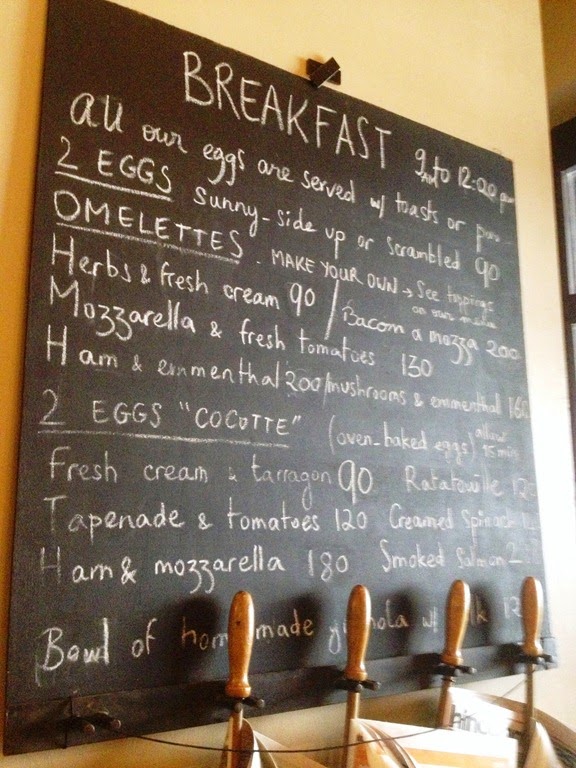 BREAKFAST 9 AM to 12:00 pm
all our eggs are served w/ toasts or
2 EGGS sunny-side up or scrambled 90
OMELETTES . MAKE YOUR OWN → See toppings
on our menu
Herbs & fresh cream 90 / Bacon & mozza 200
Mozzarella & fresh tomatoes 130
Ham & emmenthal 200/mushrooms & emmenthal 160
2 EGGS "COCOTTE" (oven-baked eggs) allow
15 min
Fresh cream & tarragon 90 Ratatouille
Tapenade & tomatoes 120 Creamed Spinach
Ham & mozzarella 180 Smoked Salmon
Bowl of homemade w/